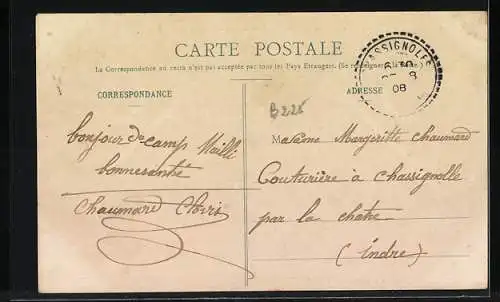 CARTE POSTALE
La Correspondance au recto n'est pas acceptée par tous les Pays Etrangers. (Se renseigner à la Poste)
CORRESPONDANCE
ADRESSE
CHASSIGNOLES
08
B225
bonjour de camp Mailli
bonnesanté
Chaumard Clovis
Madame Margeritte Chaumard
Couturière à chassignolle
par la chatre
(indre)